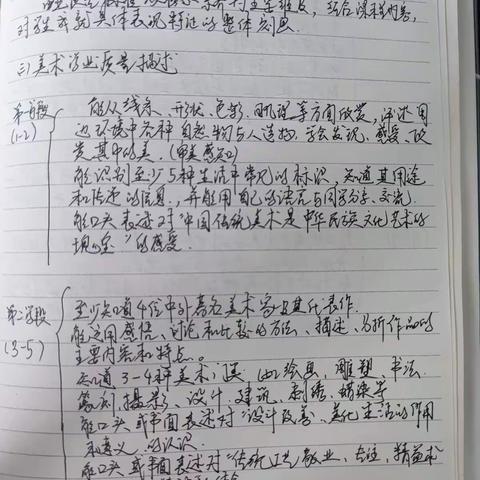 对学生成就具体表现特征的整体刻画.
(三)美术学业质量描述
第一学段
(1-2)
能从线条、形状、色彩、肌理等方面欣赏,评述周
边环境中各种自然物与人造物,学会发现、感受、欣
赏其中的美。(审美感知)
能识别至少5种生活中常见的标识,知道其用途
和传递的信息,并能用自己的语言与同学分享、交流.
能口头表述对“中国传统美术是中华民族文化艺术的
瑰宝”的感受.
第二学段
(3-5)
至少知道4位中外著名美术家及其代表作.
能运用感悟、讨论和比较的方法,描述、分析作品的
主要内容和特点。
知道3-4种美术门类,(如绘画、雕塑、书法、
篆刻、摄影、设计、建筑、刺绣、蜡染等
能口头或书面表述对“设计改善、美化生活的作用
和意义的认识.
能口头或书面表述对“传统工艺敬业、专注、精益求